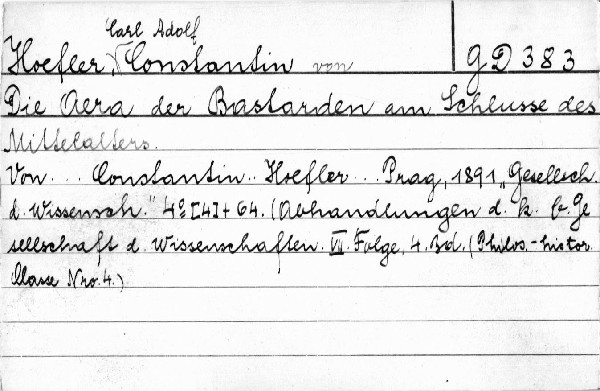 Carl Adolf
Hoefler, Constantin von
GD 383
Die Aera der Bastarden am Schlusse des
Mittelalters.
Von ... Constantin .. Hoefler ... Prag, 1891 „Gesellsch.
d. Wissensch." 4° [4] + 64. (Abhandlungen d. k. b. Ge
sellschaft d. Wissenschaften. VII. Folge, 4. Bd. (Philos.-histor.
Classe Nro. 4.)